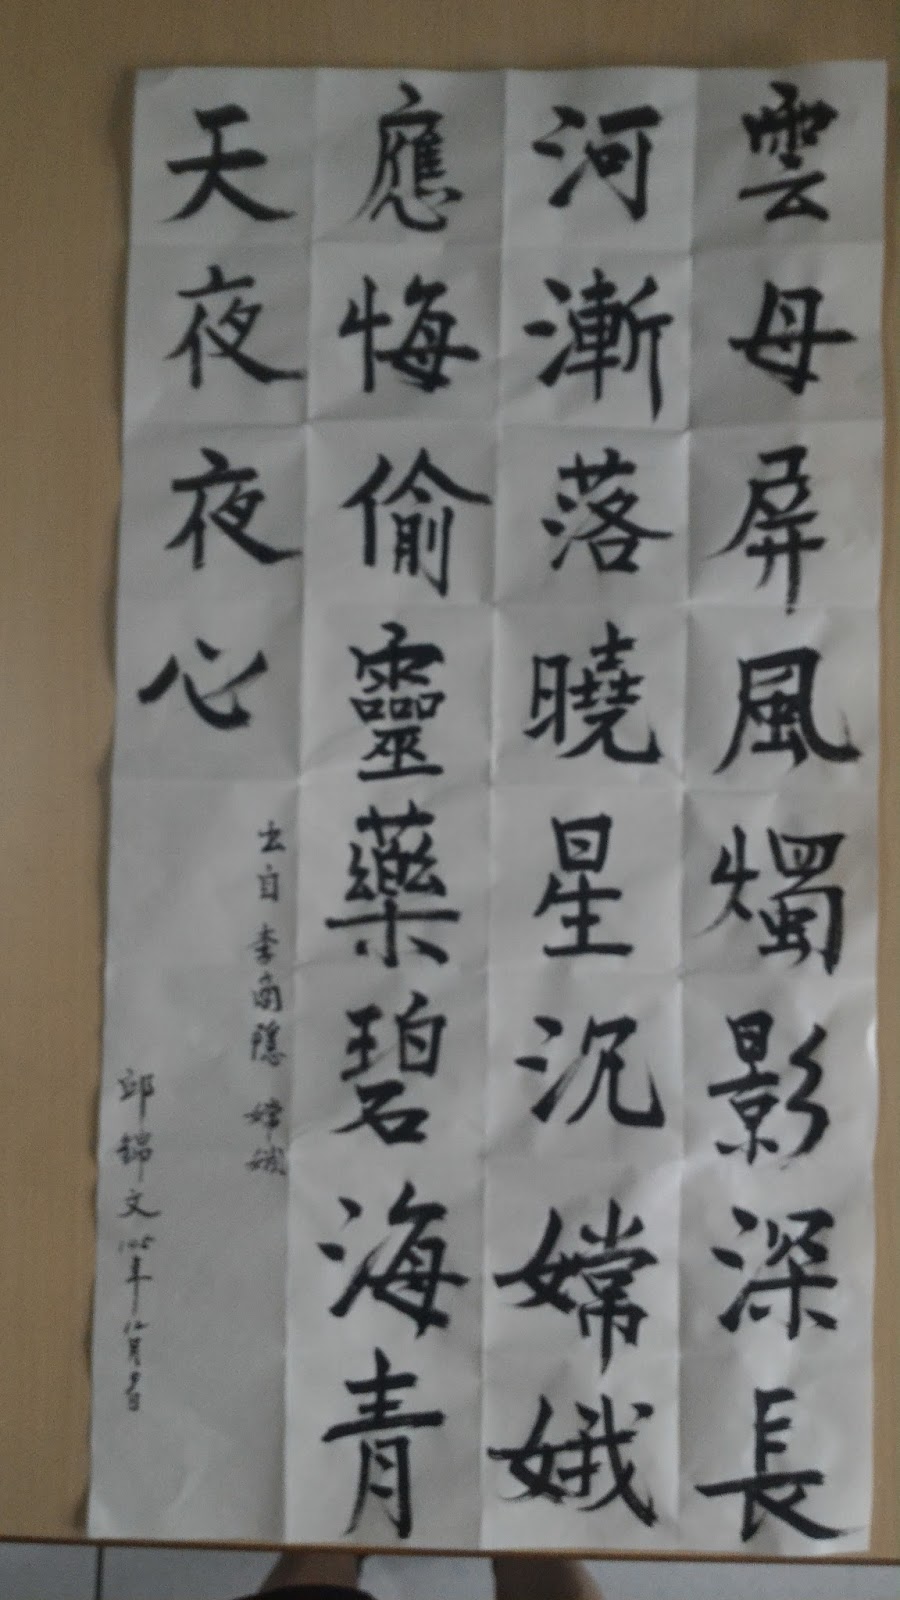 雲母屏風燭影深長
河漸落曉星沉嫦娥
應悔偷靈藥碧海青
天夜夜心
出自李商隱 嫦娥
邱錦文 105年12月書